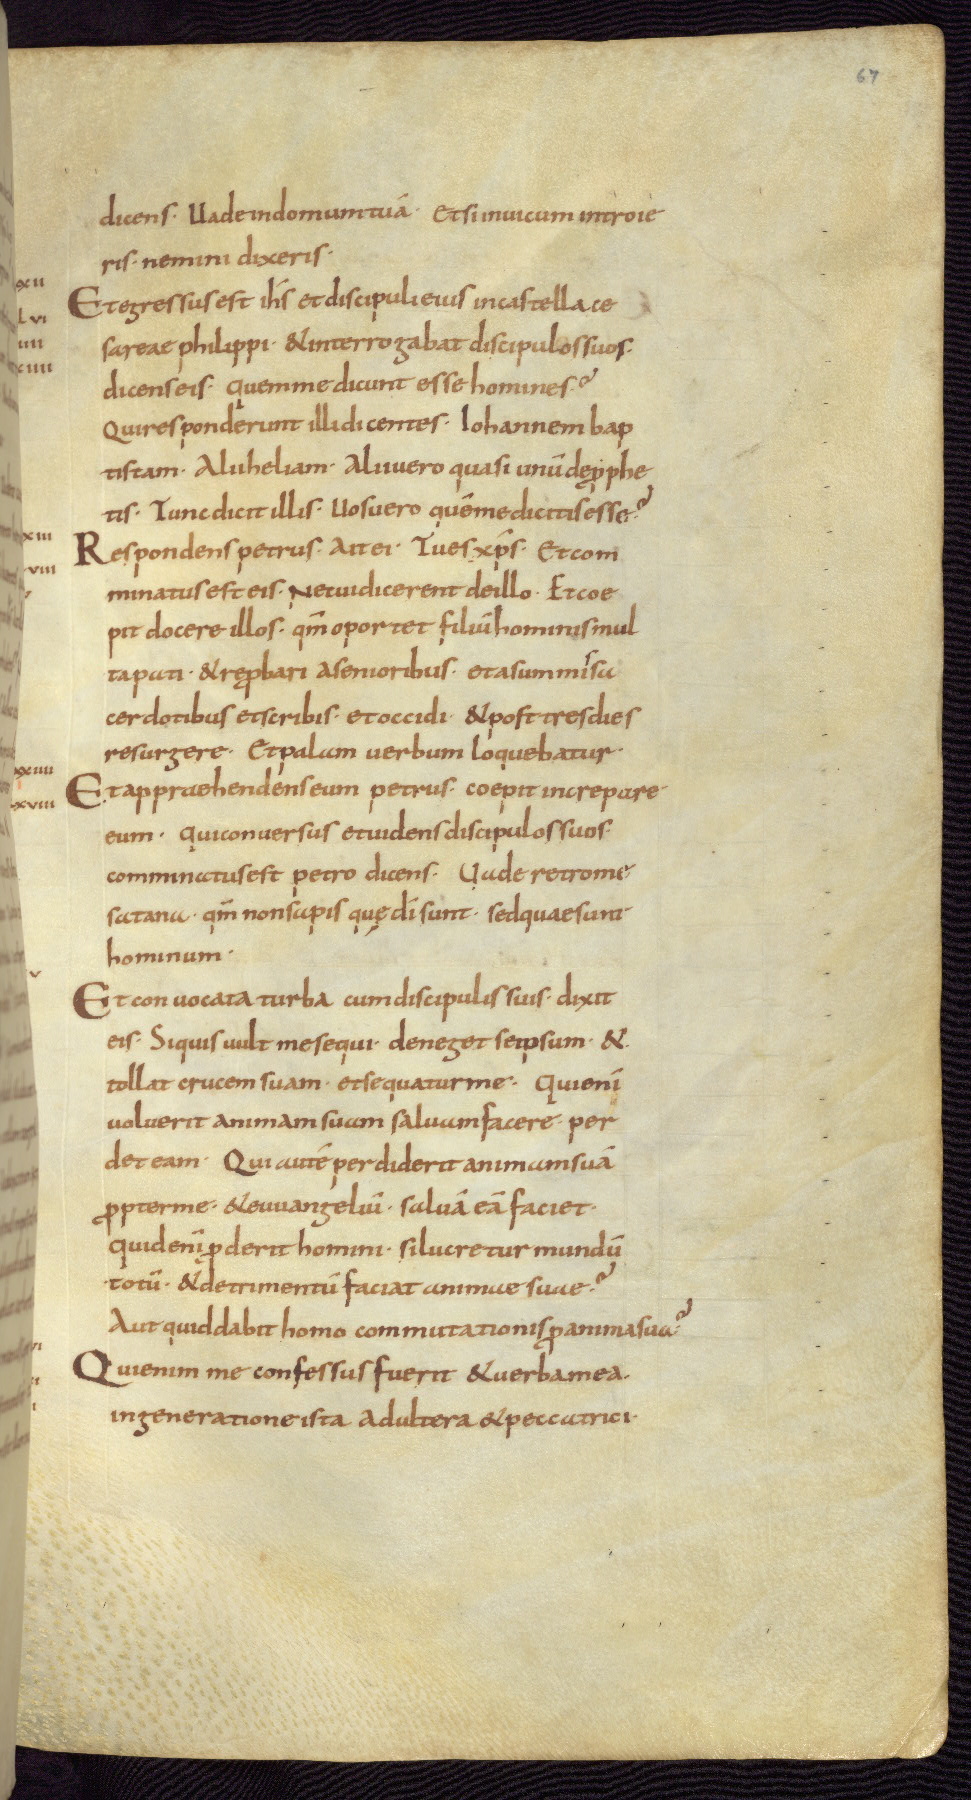 67
dicens. Uade in domum tuā. Et si in uicum introie
ris. nemini dixeris.
xii
Et egressus est ihs̄ et discipuli eius in castella ce
lvi
sareae philippi. & interrogabat discipulos suos.
iiii
ciiii
dicens eis. quem me dicunt esse homines?
Qui responderunt illi dicentes. Iohannem bap
tistam. Alii heliam. Alii uero quasi unū de ꝓphe
tis. Tunc dicit illis. Uos uero quē me dicitis esse?
xiii
Respondens petrus. Ait ei. Tu es xp̄s. Et com
viii
minatus est eis. Ne cui dicerent de illo. Et coe
pit docere illos. qm̄ oportet filiū hominis mul
ta pati. & reꝓbari a senioribus. et a summis sa
cerdotibus et scribis. et occidi. & post tres dies
resurgere. Et palam uerbum loquebatur.
xiiii
Et appraehendens eum petrus. coepit increpare
xviii
eum. Qui conuersus et uidens discipulos suos.
comminatus est petro dicens. Uade retro me
satana. qm̄ non sapis quę dī sunt. sed quae sunt
hominum.
v
Et conuocata turba cum discipulis suis. dixit
eis. Si quis uult me sequi. deneget se ipsum. &
tollat crucem suam. et sequatur me. Qui enī
uoluerit animam suam saluam facere. per
det eam. Qui autē perdiderit animam suā
ꝓpter me. & euuangeliū. saluā eā faciet.
Quid enī ꝓderit homini. si lucretur mundū
totū. & detrimentū faciat animae suae?
Aut quid dabit homo commutationis ꝓ anima sua?
vi
Qui enim me confessus fuerit & uerba mea.
in generatione ista adultera & peccatrici.